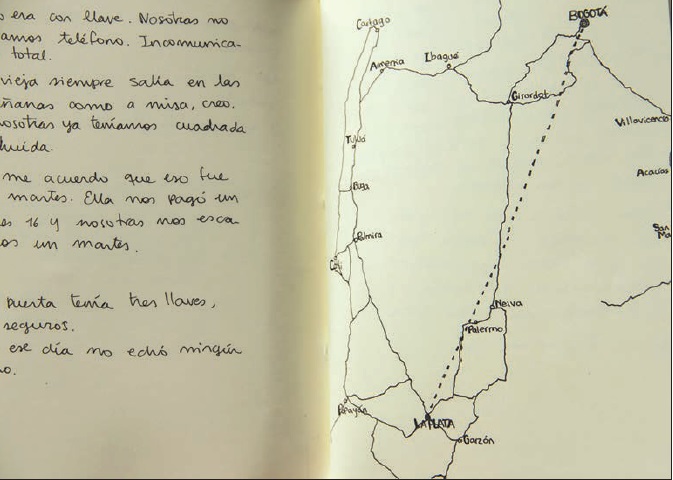 o era con llave. Nosotras no
amos teléfono. Incomunica-
total.
vieja siempre salía en las
ñanas como a misa, creo.
nosotras ya teníamos cuadrada
huida.
me acuerdo que eso fue
martes. Ella nos pagó un
es 16 y nosotras nos esca-
os un martes.
puerta tenía tres llaves,
seguros.
ese día no echó ningún
o.
BOGOTÁ
Cartago
Armenia
Ibagué
Girardot
Villavicencio
Tuluá
Acacías
Buga
San
Ma
Palmira
Cali
Neiva
Palermo
Popayán
LA PLATA
Garzón